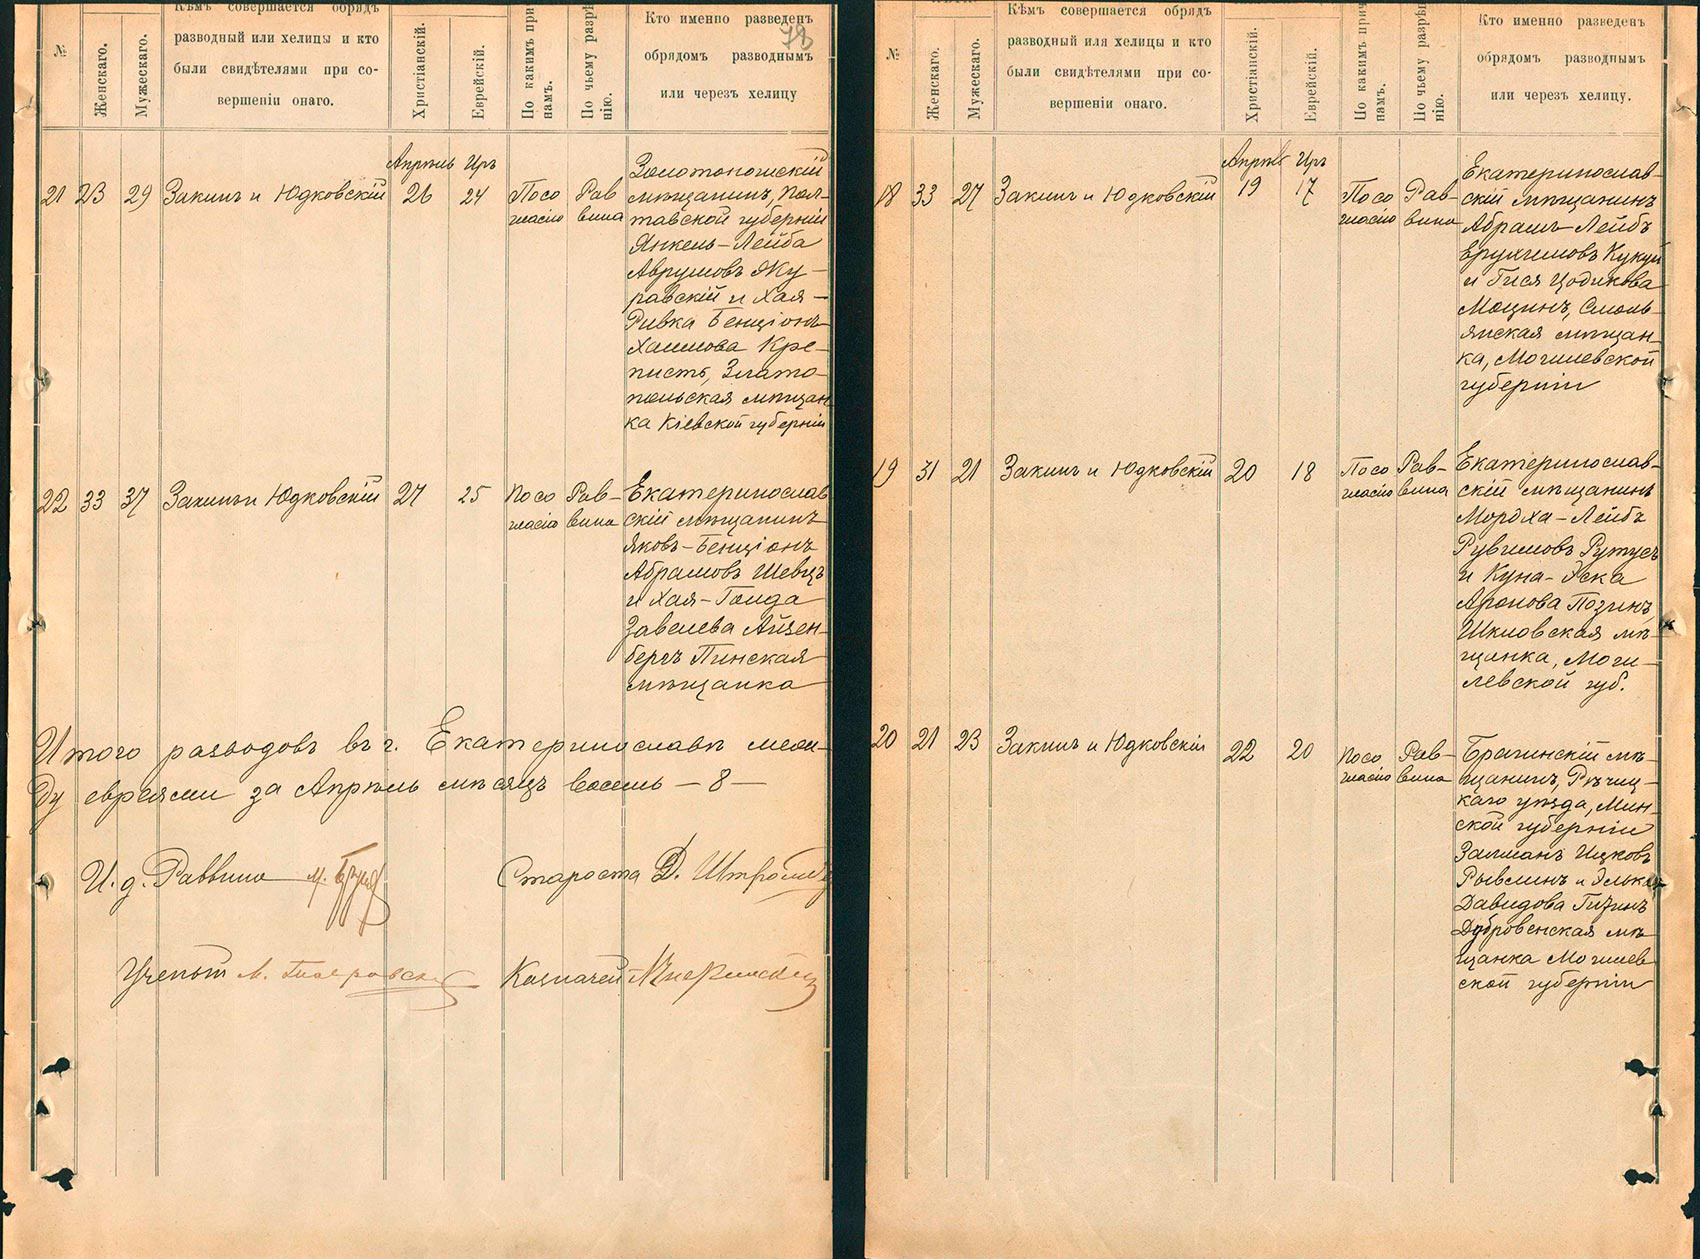 №
Женскаго.
Мужескаго.
Кѣмъ совершается обрядъ
разводный или хелицы и кто
были свидѣтелями при со-
вершеніи онаго.
Христіанскій.
Еврейскій.
По какимъ при
намъ.
По чьему разрѣ
нію.
Кто именно разведенъ
обрядомъ разводнымъ
или черезъ хелицу
78
Апрѣль Иръ
21 23 29 Закинъ и Юдковскій 26 24
По со
гласію
Рав
вина
Золотоношскій
мѣщанинъ, Пол-
тавской губерніи
Янкель-Лейба
Аврумовъ
и Хая-
Ривка Бенціонъ
Хаимова Кре-
пистъ, Злато-
польская мѣщан
ка Кіевской губерніи
22 33 37 Закинъ и Юдковскій 27 25
По со
гласію
Рав-
вина
Екатеринослав
скій мѣщанинъ
Яковъ-Бенціонъ
Абрамовъ Шевцъ
и Хая-Голда
Завелева Айзен-
бергъ Пинская
мѣщанка
Итого разводовъ въ г. Екатеринославѣ меж-
ду евреями за Апрѣль мѣсяцъ восемь - 8 -
И. д. Раввина
Староста Д.
Ученый
Казначей
№
Женскаго.
Мужескаго.
Кѣмъ совершается обрядъ
разводный или хелицы и кто
были свидѣтелями при со-
вершеніи онаго.
Христіанскій.
Еврейскій.
По какимъ прич
намъ.
По чьему разрѣ
нію.
Кто именно разведенъ
обрядомъ разводнымъ
или черезъ хелицу.
Апрѣль Иръ
18 33 27 Закинъ и Юдковскій 19 17
По со
гласію
Рав-
вина
Екатеринослав-
скій мѣщанинъ
Абрамъ-Лейбъ
Ерухимовъ Кукуй
и Гися Цодикова
Моцинъ, Смоль-
янская мѣщан-
ка, Могилевской
губерніи
19 31 21 Закинъ и Юдковскій 20 18
По со
гласію
Рав-
вина
Екатеринослав-
скій мѣщанинъ
Мордха-Лейбъ
Рувимовъ Рутусъ
и Куна-Эска
Аронова Позинъ,
Шкловская мѣ-
щанка, Моги-
левской губ.
20 21 23 Закинъ и Юдковскій 22 20
По со
гласію
Рав-
вина
Брагинскій мѣ-
щанинъ, Рѣчиц-
каго уѣзда, Мин-
ской губерніи
Залманъ Ицковъ
Рывлинъ и Элька
Давидова Гизинъ
Дубровенская мѣ-
щанка Могилев
ской губерніи